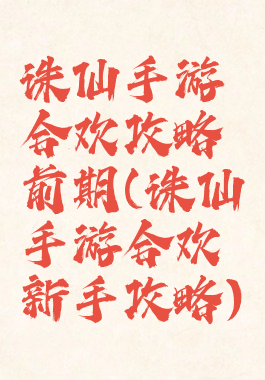 诛仙手游
合欢攻略
前期(诛仙
手游合欢
新手攻略)